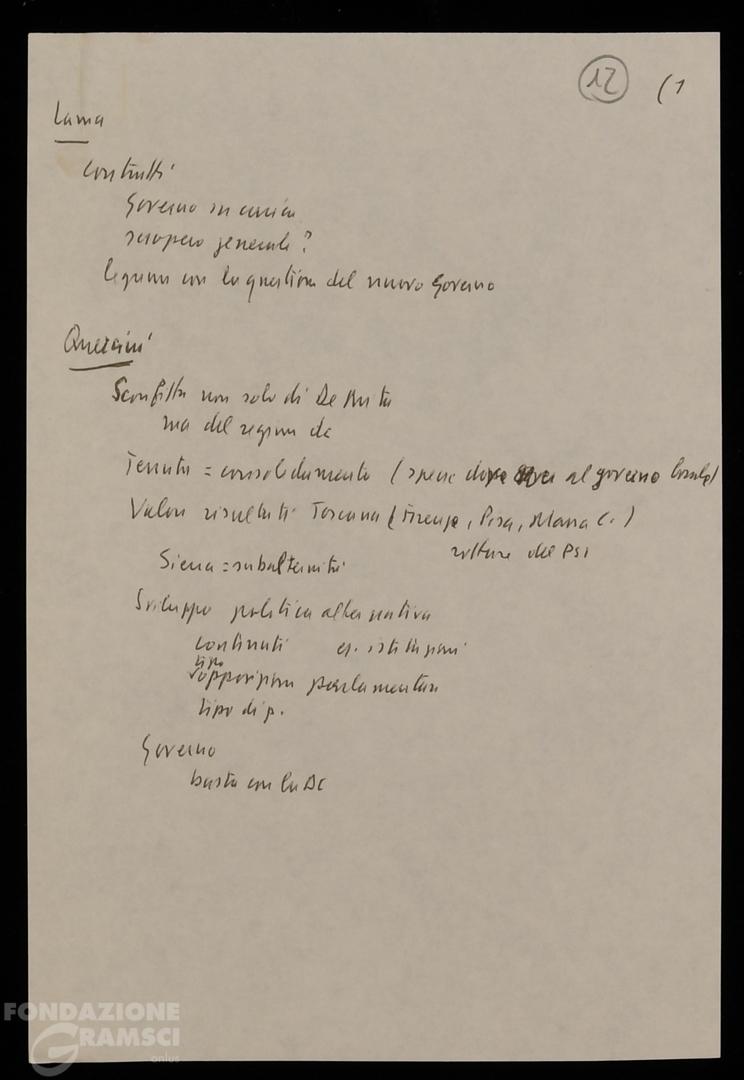 12 (1
Lama
Contratti
Governo in carica
sciopero generale?
legame con la questione del nuovo Governo
Quercini
Sconfitta non solo di De Mita
ma del regime dc
Tenuta = consolidamento (specie dove al governo locale)
Valore risultati Toscana (Firenze, Pisa, Massa C.)
rotture del PSI
Siena = subalternità
Sviluppo politica alternativa
contenuti es. istituzioni
tipo
opposizione parlamentare
tipo di p.
Governo
basta con la DC
FONDAZIONE
GRAMSCI
onlus